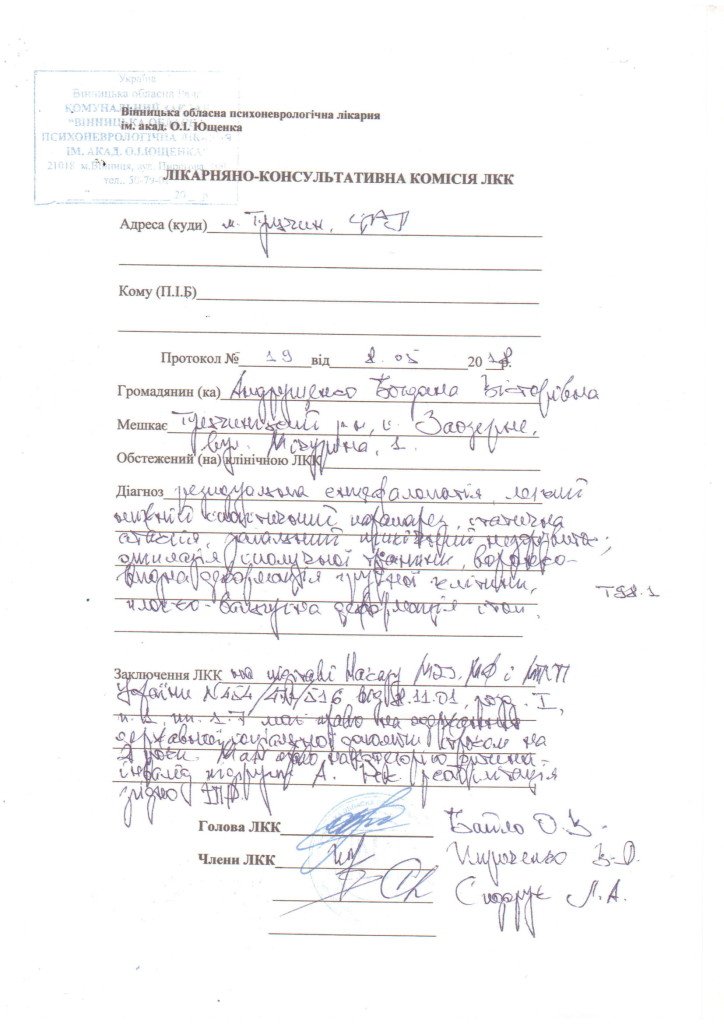 Україна
Вінницька обласна
КОМУНАЛЬНИЙ
"ВІННИЦЬКА
ПСИХОНЕВРОЛОГІЧНА
ІМ. АКАД. О.І.ЮЩЕНКА"
21018 м.Вінниця, вул. Пирогова
тел.
20
Вінницька обласна психоневрологічна лікарня
ім. акад. О.І. Ющенка
ЛІКАРНЯНО-КОНСУЛЬТАТИВНА КОМІСІЯ ЛКК
Адреса (куди) м. Тульчин, ЦРЛ
Кому (П.І.Б)
Протокол № 19 від 8.05 2018.
Громадянин (ка) Андрущенко Богдана Вікторівна
Мешкає Тульчинський р-н, с. Заозерне,
вул. Мічуріна, 1.
Обстежений (на) клінічною ЛКК
Діагноз резидуальна енцефалопатія, легкий
нижній спастичний парапарез, статична
атаксія, загальний
дисплазія сполучної тканини, воронко-
видна деформація грудної клітини,
плоско-вальгусна деформація стоп.
Заключення ЛКК на підставі Наказу МОЗ, МФ і МПСП
України N454/471/516 від 8.11.01, розд. I,
має право на одержання
державної соціальної допомоги строком на
2 роки. Має право на категорію дитина-
інвалід підгрупу А. реабілітація
згідно ІПР
Голова ЛКК
Члени ЛКК О.В.
В.О.
Л.А.